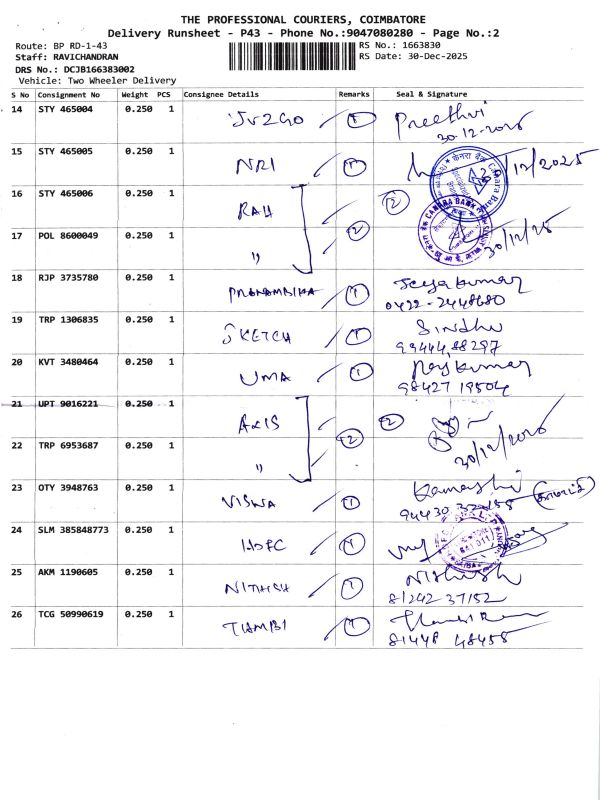 THE PROFESSIONAL COURIERS, COIMBATORE
Delivery Runsheet - P43 - Phone No.:9047080280 - Page No.:2
Route: BP RD-1-43
RS No.: 1663830
Staff: RAVICHANDRAN
RS Date: 30-Dec-2025
DRS No.: DCJB166383002
Vehicle: Two Wheeler Delivery
S No Consignment No Weight PCS Consignee Details Remarks Seal & Signature
14 STY 465004 0.250 1 1 Preethvi
30-12-2025
15 STY 465005 0.250 1 NRI 1 /12/2025
केनरा बैंक Canara Bank
16 STY 465006 0.250 1 RAH 2
CANARA BANK
17 POL 8600049 0.250 1 " 2 30/12/25
18 RJP 3735780 0.250 1 PRANAMBIKA 1 Jeyakumar
0422-2448680
19 TRP 1306835 0.250 1 SKETCH 1 Sindhu
99444,88297
20 KVT 3480464 0.250 1 UMA 1 Raykumar
98427 19504
21 UPT 9016221 0.250 1 AXIS 2
22 TRP 6953687 0.250 1 " 2 30/12/2025
23 OTY 3948763 0.250 1 VISWA 1 Kamashi
94430 32158
24 SLM 385848773 0.250 1 HDFC 1
25 AKM 1190605 0.250 1 NITHISH 1 Nithish
81242 37152
26 TCG 50990619 0.250 1 THAMBI 1
81448 48458